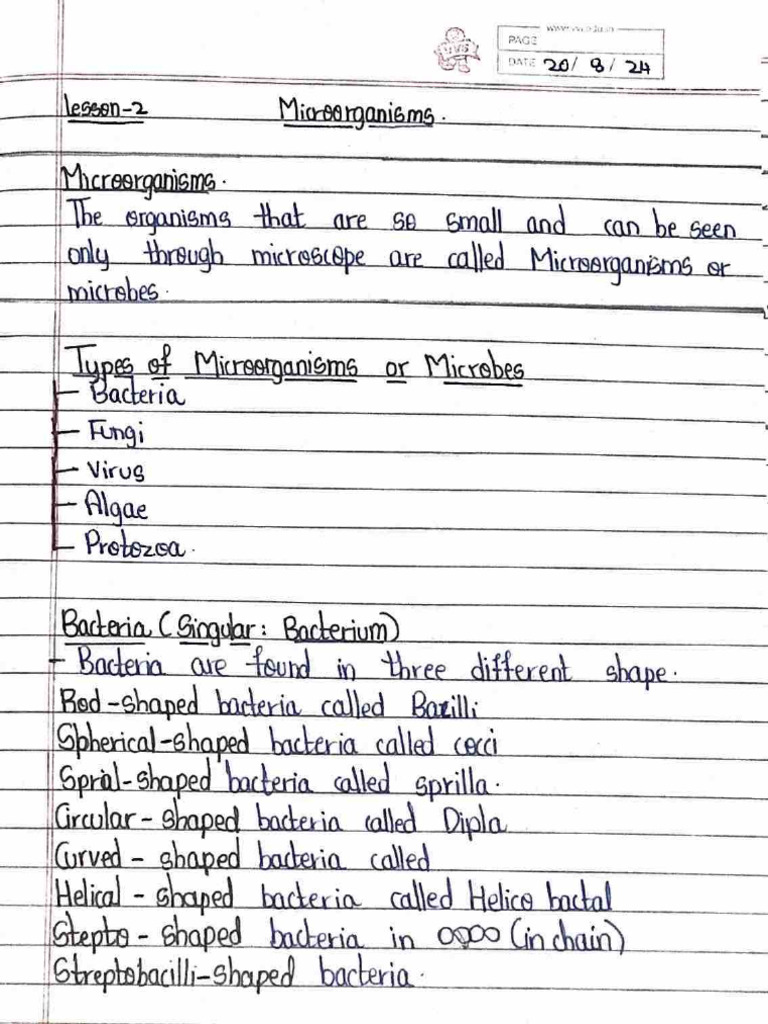 PAGE
DATE 20/ 8/ 24
lesson-2 Microorganisms.
Microorganisms.
The organisms that are so small and can be seen
only through microscope are called Microorganisms or
microbes.
Types of Microorganisms or Microbes
- Bacteria
- Fungi
- Virus
- Algae
- Protozoa.
Bacteria (Singular: Bacterium)
- Bacteria are found in three different shape.
Rod-shaped bacteria called Bazilli
Spherical-shaped bacteria called cocci
Spral-shaped bacteria called sprilla.
Circular-shaped bacteria called Dipla
Curved - shaped bacteria called
Helical - shaped bacteria called Helico bactal
Stepto - shaped bacteria in (in chain)
Streptobacilli-shaped bacteria.